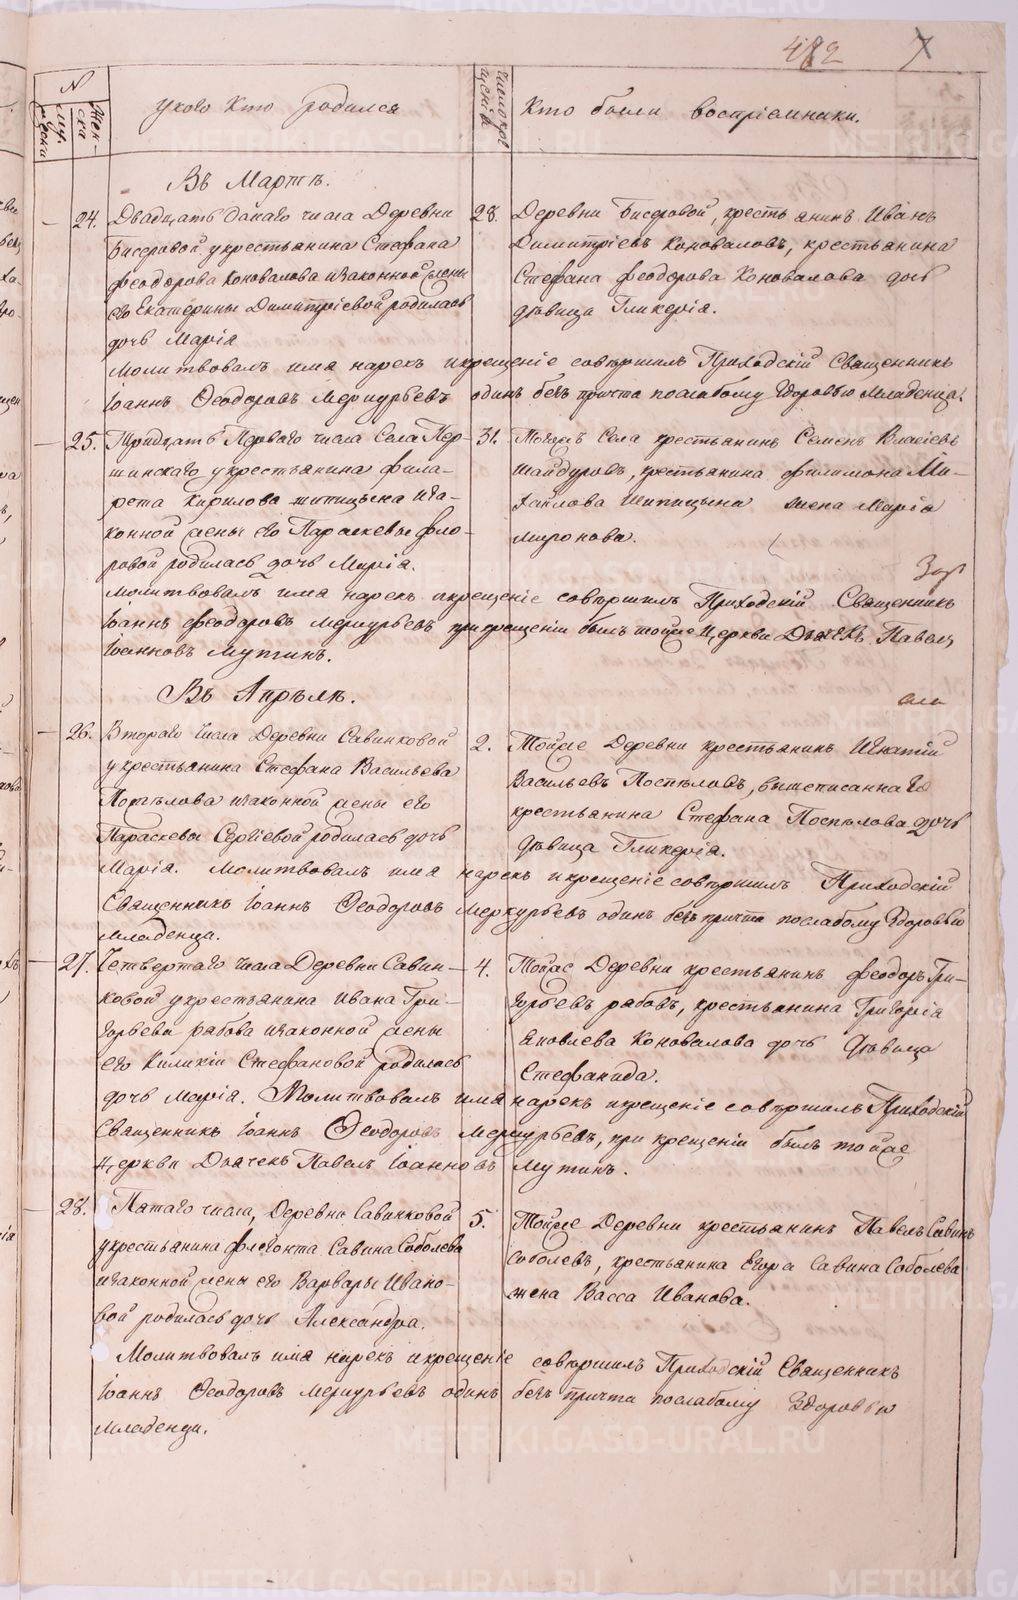 482 7
N
Муже
ски
Женски
у кого кто родился
Число кре
щенія
Кто были воспріемники.
Въ Мартѣ.
24. Двадцать осмаго числа Деревни
Бисеровой у крестьянина Стефана
Феодорова Коновалова и законной жены
его Екатерины Димитріевой родилась
дочь Марія
28. Деревни Бисеровой, крестьянинъ Иванъ
Димитріевъ Коноваловъ, крестьянина
Стефана Феодорова Коновалова дочь
дѣвица Гликерія.
Молитвовалъ имя нарекъ и крещеніе совершилъ Приходскій Священникъ
Іоаннъ Ѳеодоровъ Меркурьевъ одинъ безъ причта послабому здоровью младенца.
25. Тридцать Перваго числа Села Пер-
шинскаго у крестьянина Фила-
рета Кирилова Шипицына и за-
конной жены его Параскевы Фло-
ровой родилась дочь Марія.
31. Тогоже Села крестьянинъ Семенъ Власіевъ
Шайдуровъ, крестьянина Филимона Ми-
хайлова Шипицына жена Марія
Миронова.
Молитвовалъ имя нарекъ и крещеніе совершилъ Приходскій Священникъ
Іоаннъ Феодоровъ Меркурьевъ при крещеніи былъ тойже Церкви Дьячекъ Павелъ
Іоанновъ Мутинъ.
Въ Апрѣлѣ.
26. Втораго числа Деревни Савинковой
у крестьянина Стефана Васильева
Поспѣлова и законной жены его
Параскевы Сергіевой родилась дочь
2. Тойже Деревни крестьянинъ Игнатій
Васильевъ Поспѣловъ, вышеписаннаго
крестьянина Стефана Поспѣлова дочь
дѣвица Гликерія.
Марія. Молитвовалъ имя нарекъ и крещеніе совершилъ Приходскій
Священникъ Іоаннъ Ѳеодоровъ Меркурьевъ одинъ безъ причта послабому здоровью
младенца.
27. Четвертаго числа Деревни Савин-
ковой у крестьянина Ивана Гри-
горьева Рабова и законной жены
его Киликіи Стефановой родилась
4. Тойже Деревни крестьянинъ Феодоръ Гри-
горьевъ Рабовъ, крестьянина Григорія
Яковлева Коновалова дочь дѣвица
Стефанида.
дочь Марія. Молитвовалъ имя нарекъ и крещеніе совершилъ Приходскій
Священникъ Іоаннъ Ѳеодоровъ Меркурьевъ, при крещеніи былъ тойже
Церкви Дьячекъ Павелъ Іоанновъ Мутинъ.
28. Пятаго числа, Деревни Савинковой
у крестьянина Флегонта Савина Соболева
и законной жены его Варвары Ивано-
вой родилась дочь Александра.
5. Тойже Деревни крестьянинъ Павелъ Савинъ
Соболевъ, крестьянина Егора Савина Соболева
жена Васса Иванова.
Молитвовалъ имя нарекъ и крещеніе совершилъ Приходскій Священникъ
Іоаннъ Ѳеодоровъ Меркурьевъ одинъ безъ причта послабому здоровью
младенца.
METRIKI.GASO-URAL.RU